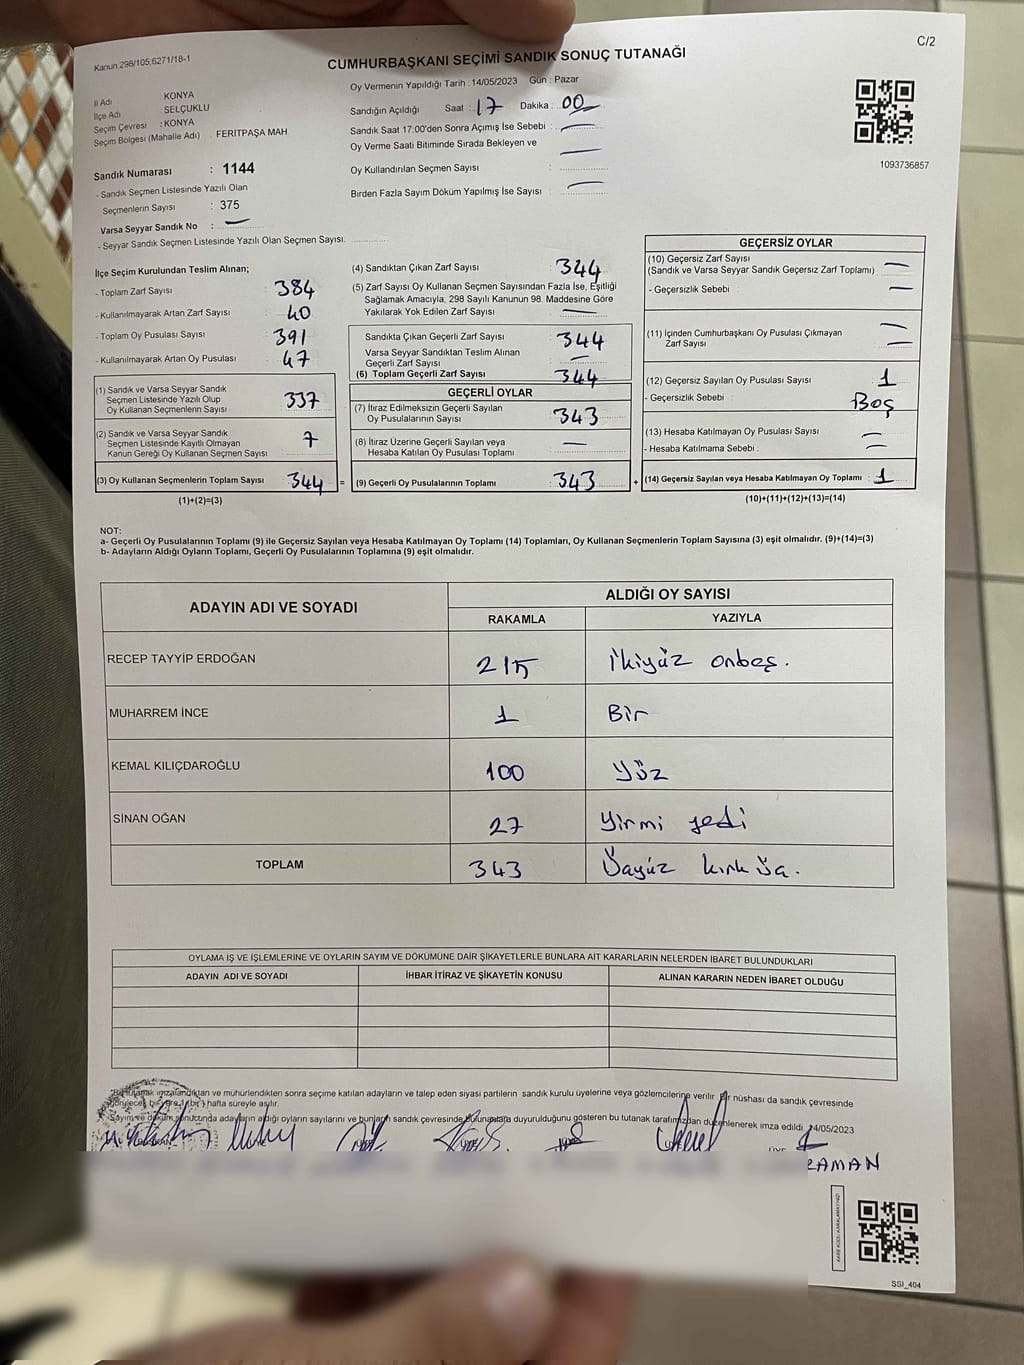 C/2
Kanun 298/105;6271/18-1
CUMHURBAŞKANI SEÇİMİ SANDIK SONUÇ TUTANAĞI
İl Adı KONYA
İlçe Adı SELÇUKLU
Seçim Çevresi : KONYA
Seçim Bölgesi (Mahalle Adı) : FERITPAŞA MAH
Sandık Numarası : 1144
- Sandık Seçmen Listesinde Yazılı Olan
Seçmenlerin Sayısı : 375
Varsa Seyyar Sandık No : —
- Seyyar Sandık Seçmen Listesinde Yazılı Olan Seçmen Sayısı.
Oy Vermenin Yapıldığı Tarih : 14/05/2023 Gün : Pazar
Sandığın Açıldığı Saat : 17 Dakika : 00
Sandık Saat 17:00'den Sonra Açımış İse Sebebi : —
Oy Verme Saati Bitiminde Sırada Bekleyen ve —
Oy Kullandırılan Seçmen Sayısı :
Birden Fazla Sayım Döküm Yapılmış İse Sayısı : —
1093736857
İlçe Seçim Kurulundan Teslim Alınan;
- Toplam Zarf Sayısı : 384
- Kullanılmayarak Artan Zarf Sayısı : 40
- Toplam Oy Pusulası Sayısı : 391
- Kullanılmayarak Artan Oy Pusulası : 47
(1) Sandık ve Varsa Seyyar Sandık
Seçmen Listesinde Yazılı Olup
Oy Kullanan Seçmenlerin Sayısı : 337
(2) Sandık ve Varsa Seyyar Sandık
Seçmen Listesinde Kayıtlı Olmayan
Kanun Gereği Oy Kullanan Seçmen Sayısı : 7
(3) Oy Kullanan Seçmenlerin Toplam Sayısı : 344 =
(1)+(2)=(3)
(4) Sandıktan Çıkan Zarf Sayısı : 344
(5) Zarf Sayısı Oy Kullanan Seçmen Sayısından Fazla İse, Eşitliği
Sağlamak Amacıyla, 298 Sayılı Kanunun 98. Maddesine Göre
Yakılarak Yok Edilen Zarf Sayısı : —
Sandıkta Çıkan Geçerli Zarf Sayısı : 344
Varsa Seyyar Sandıktan Teslim Alınan
Geçerli Zarf Sayısı : —
(6) Toplam Geçerli Zarf Sayısı : 344
GEÇERLİ OYLAR
(7) İtiraz Edilmeksizin Geçerli Sayılan
Oy Pusulalarının Sayısı : 343
(8) İtiraz Üzerine Geçerli Sayılan veya
Hesaba Katılan Oy Pusulası Toplamı : —
(9) Geçerli Oy Pusulalarının Toplamı : 343 +
GEÇERSİZ OYLAR
(10) Geçersiz Zarf Sayısı
(Sandık ve Varsa Seyyar Sandık Geçersiz Zarf Toplamı) : —
- Geçersizlik Sebebi : —
(11) İçinden Cumhurbaşkanı Oy Pusulası Çıkmayan
Zarf Sayısı : —
(12) Geçersiz Sayılan Oy Pusulası Sayısı : 1
- Geçersizlik Sebebi : Boş
(13) Hesaba Katılmayan Oy Pusulası Sayısı : —
- Hesaba Katılmama Sebebi : —
(14) Geçersiz Sayılan veya Hesaba Katılmayan Oy Toplamı : 1
(10)+(11)+(12)+(13)=(14)
NOT:
a- Geçerli Oy Pusulalarının Toplamı (9) ile Geçersiz Sayılan veya Hesaba Katılmayan Oy Toplamı (14) Toplamları, Oy Kullanan Seçmenlerin Toplam Sayısına (3) eşit olmalıdır. (9)+(14)=(3)
b- Adayların Aldığı Oyların Toplamı, Geçerli Oy Pusulalarının Toplamına (9) eşit olmalıdır.
ADAYIN ADI VE SOYADI ALDIĞI OY SAYISI
RAKAMLA YAZIYLA
RECEP TAYYİP ERDOĞAN 215 İkiyüz onbeş.
MUHARREM İNCE 1 Bir
KEMAL KILIÇDAROĞLU 100 Yüz
SİNAN OĞAN 27 Yirmi yedi
TOPLAM 343 Üçyüz kırk üç.
OYLAMA İŞ VE İŞLEMLERİNE VE OYLARIN SAYIM VE DÖKÜMÜNE DAİR ŞİKAYETLERLE BUNLARA AİT KARARLARIN NELERDEN İBARET BULUNDUKLARI
ADAYIN ADI VE SOYADI İHBAR İTİRAZ VE ŞİKAYETİN KONUSU ALINAN KARARIN NEDEN İBARET OLDUĞU
tutanak imzalandıktan ve mühürlendikten sonra seçime katılan adayların ve talep eden siyasi partilerin sandık kurulu üyelerine veya gözlemcilerine verilir. Bir nüshası da sandık çevresinde
hafta süreyle asılır.
Sayım ve döküm sonucunda adayların aldığı oyların sayılarını ve bunların sandık çevresinde bulunanlara duyurulduğunu gösteren bu tutanak tarafımızdan düzenlenerek imza edildi. 14/05/2023
RAMAN
SSI_404